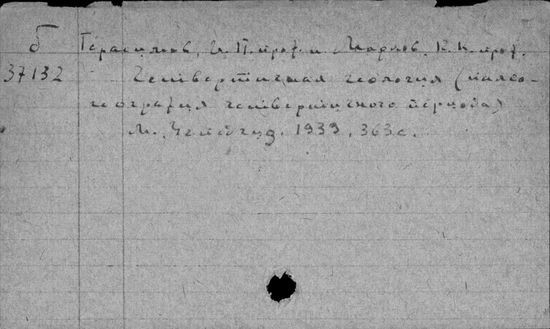 б Герасимов, И. П. проф. и Марков, К. К. проф.
37132 Четвертичная геология (палео-
география четвертичного периода)
М., Учпедгиз. 1939, 363 с.